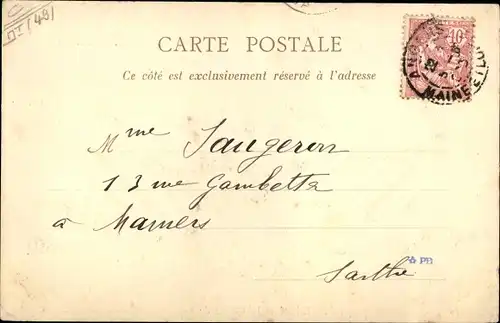 CARTE POSTALE
Ce côté est exclusivement réservé à l'adresse
10
MAINE
Mme Saugeron
13 rue Gambetta
à Mamers
Sarthe
PB